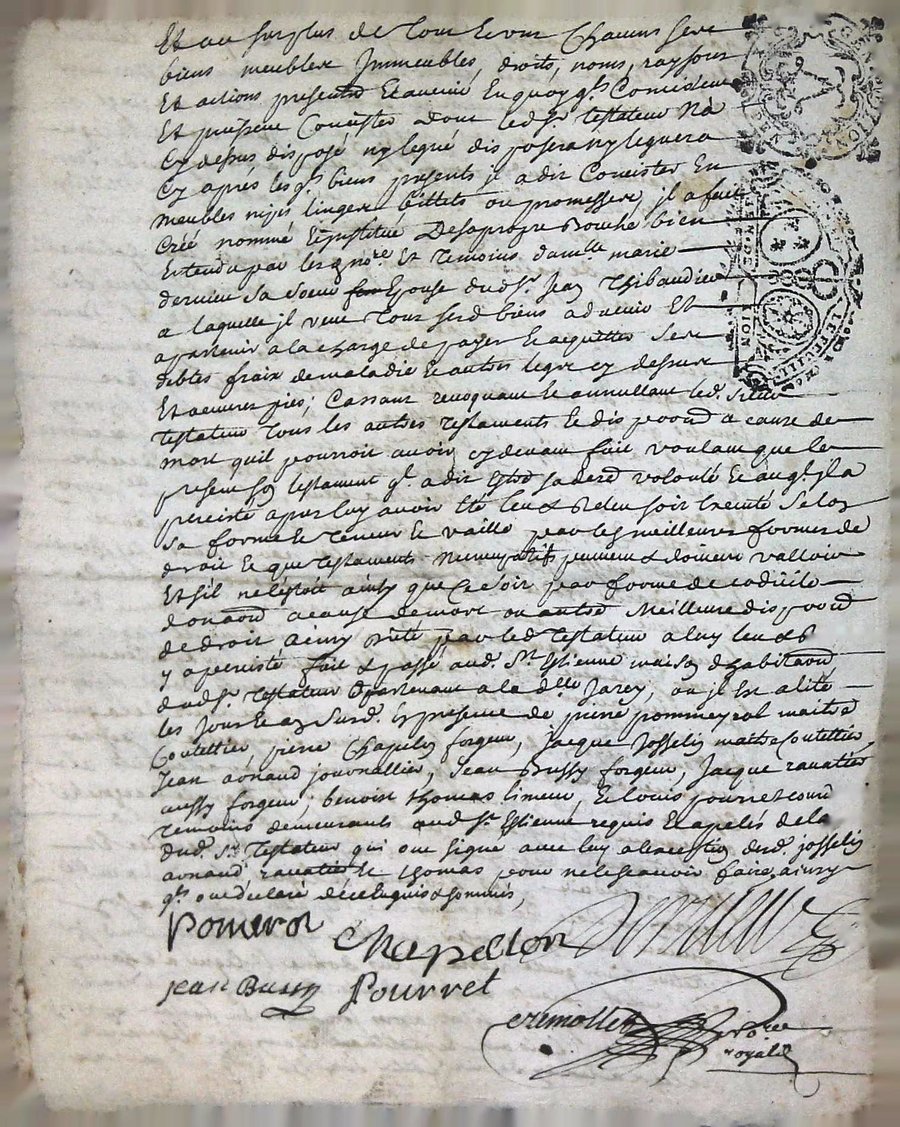 Et au surplus de tous Et uns Chacuns ses
biens meubles Immeubles, droits, noms, raysons
Et actions presents Et avenir En quoy qls Consistent
Et puissent Consister dont led. sr. testateur Na
Cy dessus disposé ny legué disposera ny leguera
Cy après les qls biens presents jl a dit Consister En
meubles nipes linges billets ou promesses, jl a fait
Créé nommé Et Institué De sa propre bouche bien
Entendu par les gnore. Et temoins damlle. marie
dervieu sa soeur Epouse dud. sr. Jean Thibaudier
a laquelle jl veut tous sesd. biens advenir Et
apartenir a la charge de payer Et aquitter ses
debtes fraix de maladie Et autres legs cy dessus
Et oeuvres pies; Cassant revoquant Et annullant led. sieur
testateur tous les autres testaments Et dispoons a cause de
mort quil pourroit avoir cy devant fait voulant que le
present son testament ql a dit Estre sa dere. volonté Et auql jl a
percisté apres luy avoir Eté leu & releu soit Executé Selon
sa forme Et teneur Et vaille par les meilleures formes de
droit Et que testaments Nuncupatifs peuvent & doivent valloir
Et sil nestoit ainsy que Ce soit par forme de codicile
donaon a cause de mort ou autre Meilleure dispoon
de droit ainsy dicté par led. testateur a luy leu & R
y a perciste fait & passé aud. St. Estienne maison dhabitaon
dud. sr. testateur apartenant a la dlle Jarey, ou jl Est alité
les Jours Et an Susd. En presence de pierre pommeyrol maitre
Coutellier, pierre Chapelon forgeur, Jacque Josselin maitre Coutellier,
Jean arnaud journallier, Jean Bussy forgeur, Jacque ravatier
aussy forgeur, benoist thomas limeur, Et louis pourret cord.
temoins demeurants aud. St. Estienne requis Et apelés de la
dud. sr. testateur qui ont signé avec luy a lexception desd. josselin
arnaud ravatier Et thomas pour ne le sçavoir faire, ainsy
qls ont declaré de ce Enquis & sommés,
Pomerol
Chapellon
Dervieu
jean Bussy
Pourret
crimollet
Nore
royal
GEN
LA FEUILLE